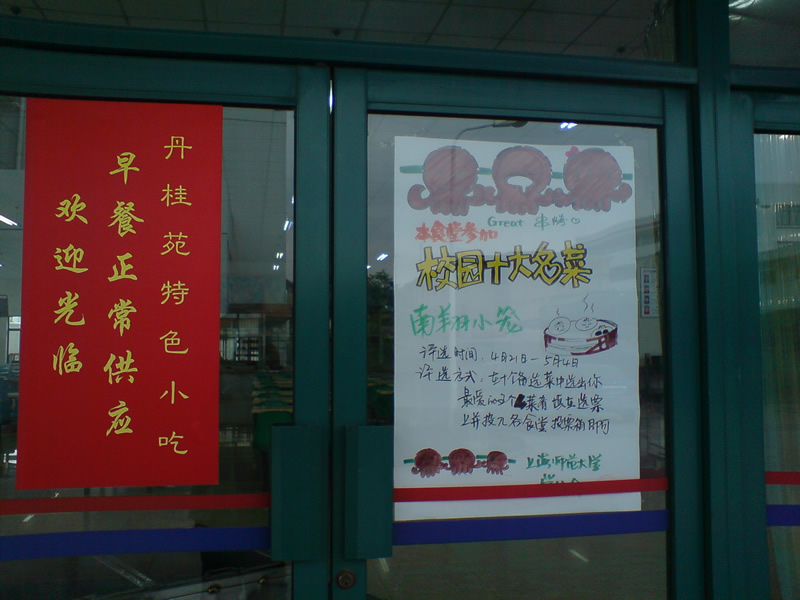 丹桂苑特色小吃
早餐正常供应
欢迎光临
Great 串烤
本食堂参加
校园十大名菜
南羊村小笼
评选时间：4月21日－5月4日
评选方式：在十个备选菜中选出你
最爱的3个菜有
上并投入名食堂投票箱即可
上海师范大学